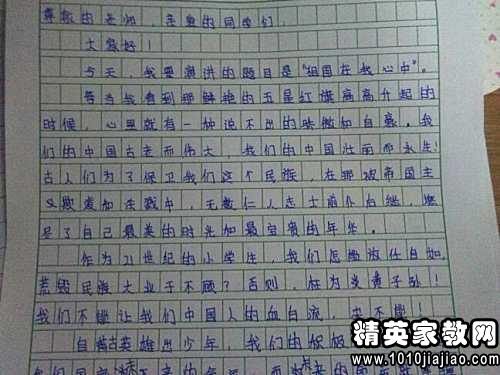 尊敬的老师，亲爱的同学们：
大家好！
今天，我要演讲的题目是"祖国在我心中"。
每当我看到那鲜艳的五星红旗高高升起的
时候，心里就有一种说不出的骄傲和自豪。我
们的中国古老而伟大，我们的中国壮丽而永生！
古人们为了保卫我们这个民族，在那被帝国主
义欺凌和杀戮中，无数仁人志士前仆后继，
了自己最美的时光和最宝贵的年华。
作为21世纪的小学生，我们怎能
荒 民族大业于不顾？否则，枉为炎黄子孙！
我们不能让我们中国人的血白流，决不能！
自古英雄出少年，我们的
精英家教网
www.1010jiajiao.com